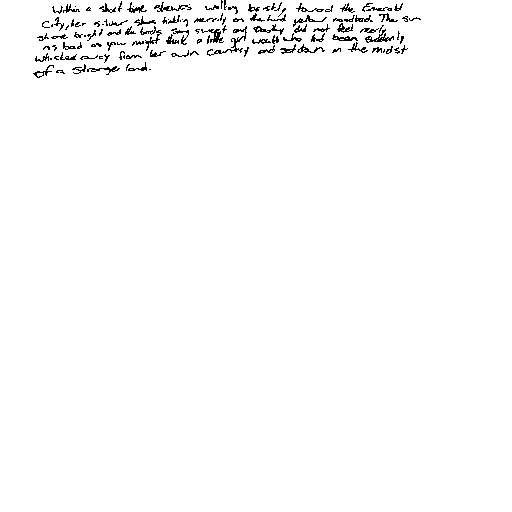 Within a short time she was walking briskly toward the Emerald
City, her silver shoes tinkling merrily on the hard yellow roadbed. The sun
shone bright and the birds sang sweet and Dorothy did not feel nearly
as bad as you might think a little girl would who had been suddenly
whisked away from her own country and set down in the midst
of a strange land.